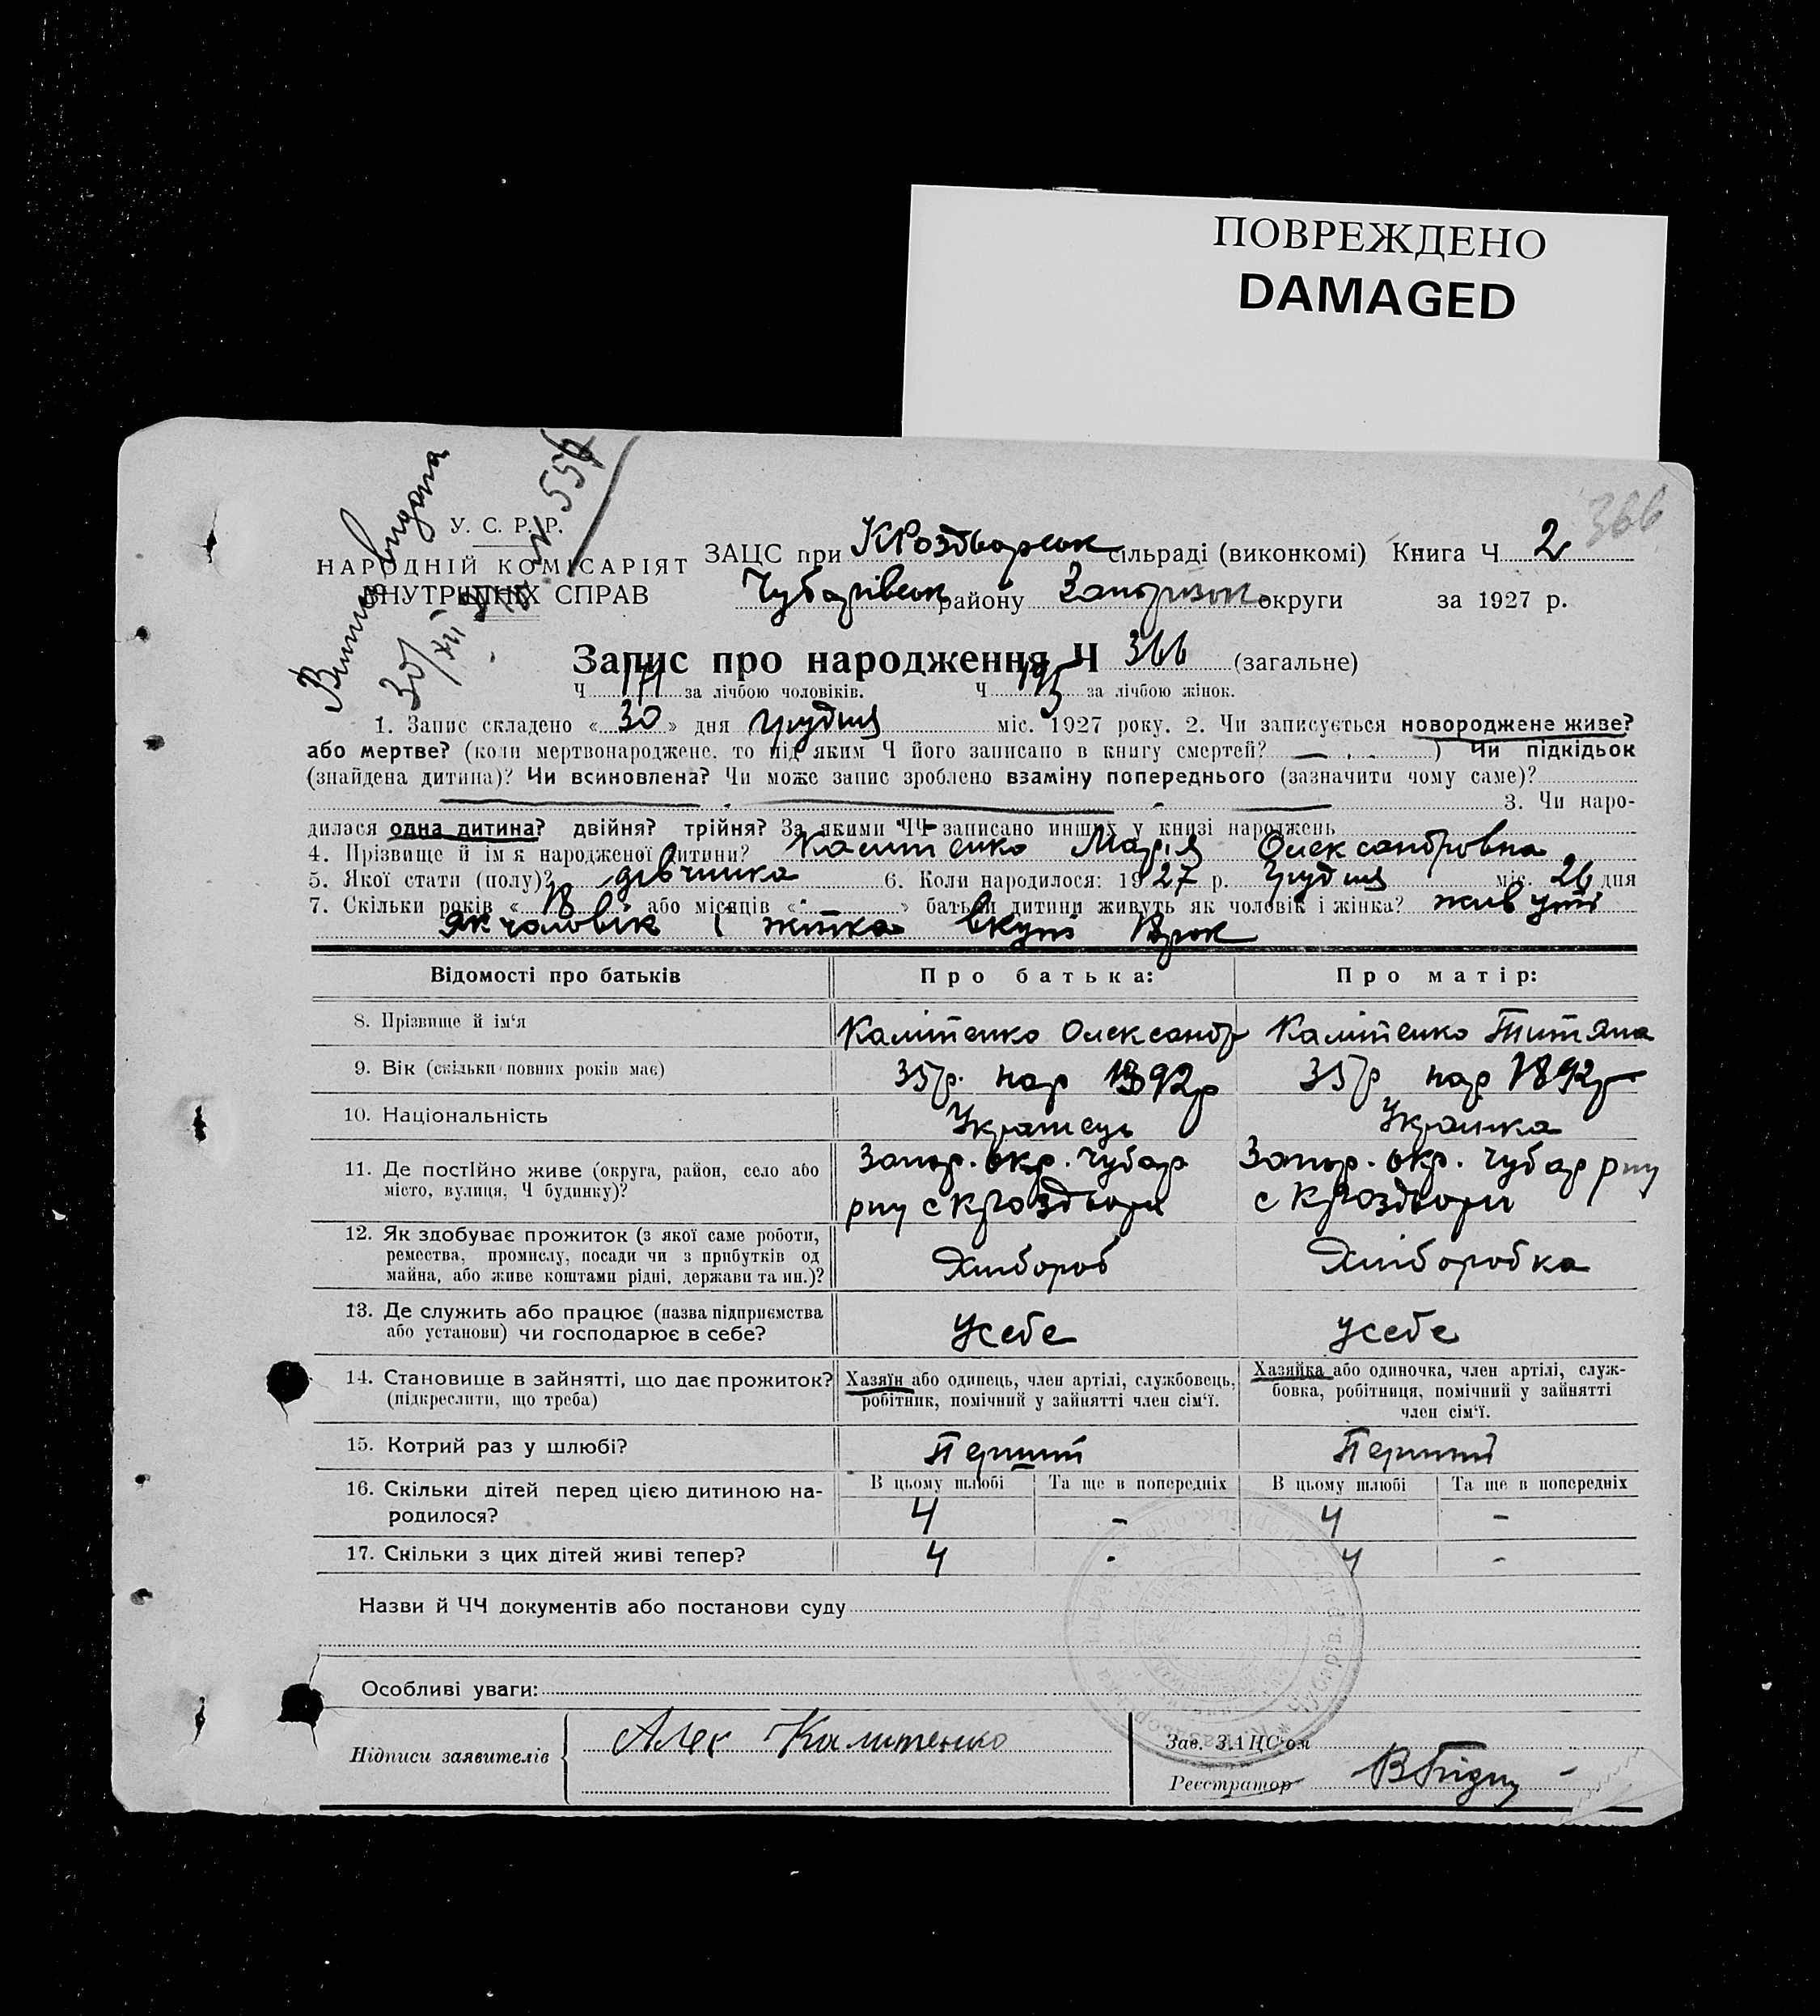 ПОВРЕЖДЕНО
DAMAGED
366
Виписъ видана
30/XII № 556
У. С. Р. Р.
НАРОДНІЙ КОМІСАРІЯТ
ВНУТРІШНІХ СПРАВ
ЗАЦС при КРоздворськ сільраді (виконкомі) Книга Ч 2
Чубарівськ району Запоризьк округи за 1927 р.
Запис про народження Ч 366 (загальне)
Ч 171 за лічбою чоловіків. Ч 195 за лічбою жінок.
1. Запис складено « 30 » дня грудня міс. 1927 року. 2. Чи записується новороджене живе?
або мертве? (коли мертвонароджене, то під яким Ч його записано в книгу смертей? — ) Чи підкідьок
(знайдена дитина)? Чи всиновлена? Чи може запис зроблено взаміну попереднього (зазначити чому саме)?
3. Чи наро-
дилася одна дитина? двійня? трійня? За якими ЧЧ записано инших у книзі народжень —
4. Прізвище й ім'я народженої дитини? Калітенко Марія Олександровна
5. Якої стати (полу)? дівчинка 6. Коли народилося: 1927 р. грудня міс. 26 дня
7. Скільки років « 18 » або місяців « - » батьки дитини живуть як чоловік і жінка? живуть
як чоловік і жінка вкупі 18 рок
Відомості про батьків Про батька: Про матір:
8. Прізвище й ім'я Калітенко Олександр Калітенко Титяна
9. Вік (скільки повних років має) 35 р. нар 1892 р 35 р нар 1892 р
10. Національність Українець Українка
11. Де постійно живе (округа, район, село або місто, вулиця, Ч будинку)? Запор. окр. Чубар рну с КРоздвори Запор. окр. Чубар рну с КРоздвори
12. Як здобуває прожиток (з якої саме роботи, ремества, промислу, посади чи з прибутків од майна, або живе коштами рідні, держави та ин.)? Хлібороб Хліборобка
13. Де служить або працює (назва підприємства або установи) чи господарює в себе? Усебе Усебе
14. Становище в зайнятті, що дає прожиток? (підкреслити, що треба) Хазяїн або одинець, член артілі, службовець, робітник, помічний у зайнятті член сім'ї. Хазяйка або одиночка, член артілі, служ-бовка, робітниця, помічний у зайнятті член сім'ї.
15. Котрий раз у шлюбі? Перший Перший
16. Скільки дітей перед цією дитиною на-родилося? В цьому шлюбі 4 Та ще в попередніх - В цьому шлюбі 4 Та ще в попередніх -
17. Скільки з цих дітей живі тепер? 4 - 4 -
Назви й ЧЧ документів або постанови суду
Особливі уваги:
Підписи заявителів Алек Калитенко
Зав. ЗАЦС'ом
Реєстратор